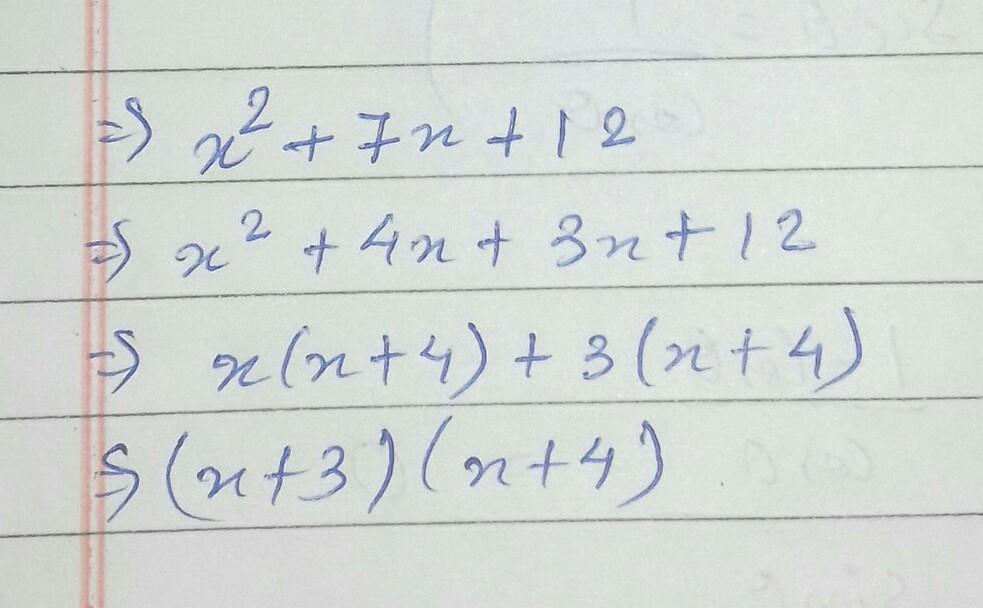 ⇒ x² + 7x + 12
⇒ x² + 4x + 3x + 12
⇒ x(x+4) + 3(x+4)
⇒ (x+3)(x+4)